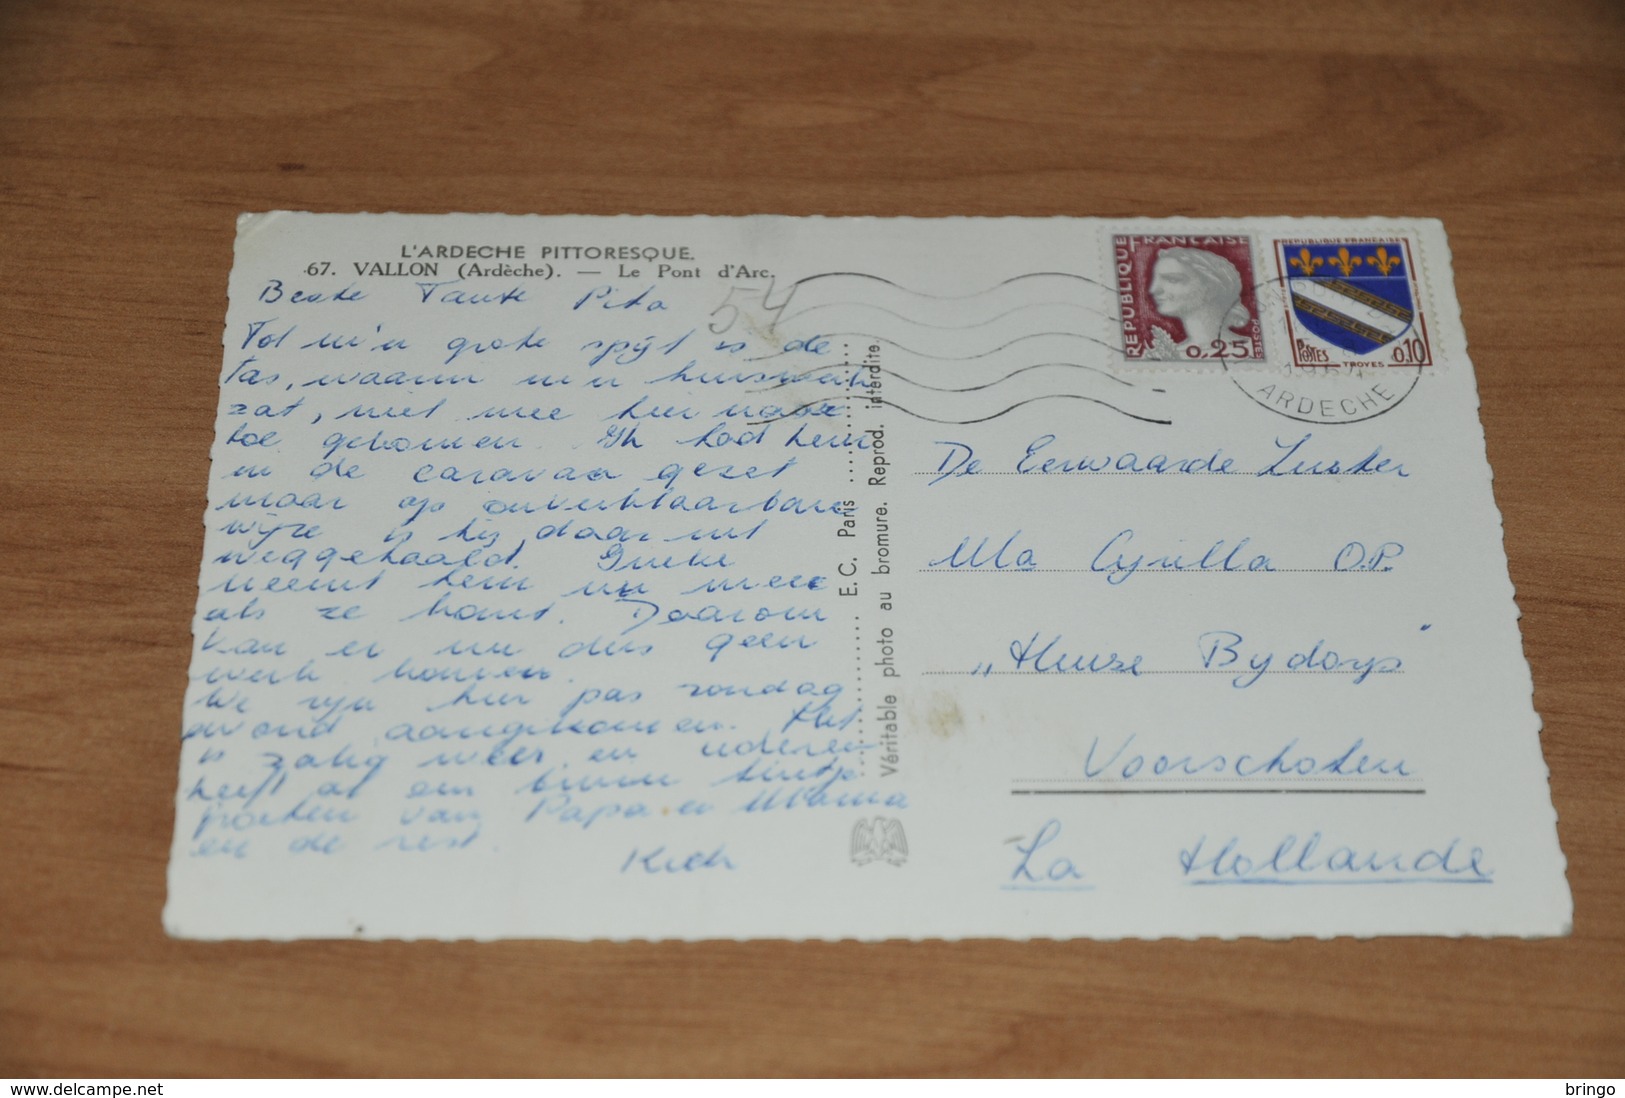 L'ARDECHE PITTORESQUE.
67. VALLON (Ardèche). — Le Pont d'Arc.
54
Beste Tante Pita
Tot m'n grote spijt is de
tas, waarin m'n huiswerk
zat, niet mee hier naar
toe gekomen. Ik had hem
in de caravan gezet
maar op onverklaarbare
wijze is hij daar uit
weggehaald. Ineke
neemt hem nu mee
als ze komt. Daarom
kan er nu dus geen
werk komen.
We zijn hier pas zondag
avond aangekomen. Het
is zalig weer en iedereen
heeft al een bruin tintje
groeten van Papa en Mama
en de rest.
E. C. Paris
Véritable photo au bromure. Reprod. interdite.
REPUBLIQUE FRANÇAISE
POSTES
0,25
REPUBLIQUE FRANÇAISE
POSTES 0,10
TROYES
ARDECHE
De Eerwaarde Zuster
Ma Cyrilla O.P.
„Huize Bydorp"
Voorschoten
La Hollande
bringo
delcampe.net